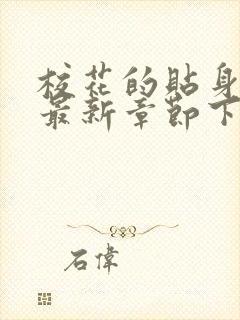 校花的貼身
最新章節下
石偉